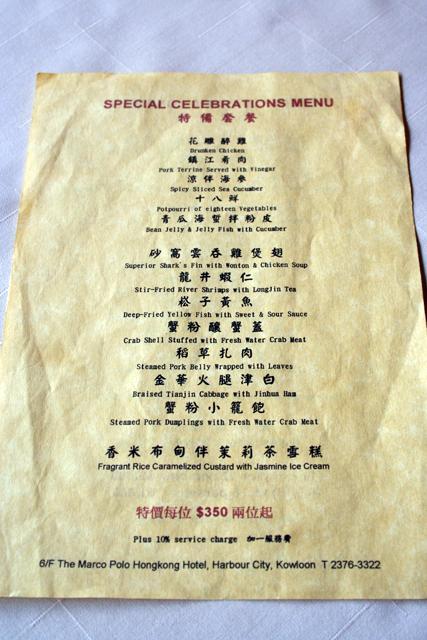 SPECIAL CELEBRATIONS MENU
特備套餐
花雕醉雞
Drunken Chicken
鎮江肴肉
Pork Terrine Served with Vinegar
涼伴海參
Spicy Sliced Sea Cucumber
十八鮮
Potpourri of eighteen Vegetables
青瓜海蜇拌粉皮
Bean Jelly & Jelly Fish with Cucumber
砂窩雲吞雞煲翅
Superior Shark's Fin with Wonton & Chicken Soup
龍井蝦仁
Stir-Fried River Shrimps with LongJin Tea
崧子黃魚
Deep-Fried Yellow Fish with Sweet & Sour Sauce
蟹粉釀蟹蓋
Crab Shell Stuffed with Fresh Water Crab Meat
稻草扎肉
Steamed Pork Belly Wrapped with Leaves
金華火腿津白
Braised Tianjin Cabbage with Jinhua Ham
蟹粉小籠飽
Steamed Pork Dumplings with Fresh Water Crab Meat
香米布甸伴茉莉茶雪糕
Fragrant Rice Caramelized Custard with Jasmine Ice Cream
特價每位 $350 兩位起
Plus 10% service charge 加一服務費
6/F The Marco Polo Hongkong Hotel, Harbour City, Kowloon T 2376-3322